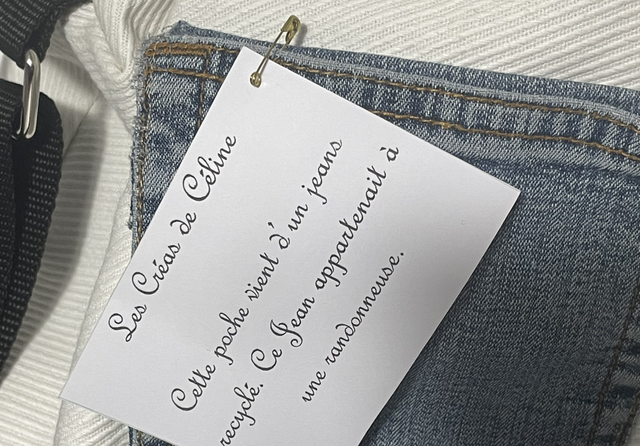 Les Créas de Céline
Cette poche vient d'un jeans
recyclé. Ce Jean appartenait à
une randonneuse.